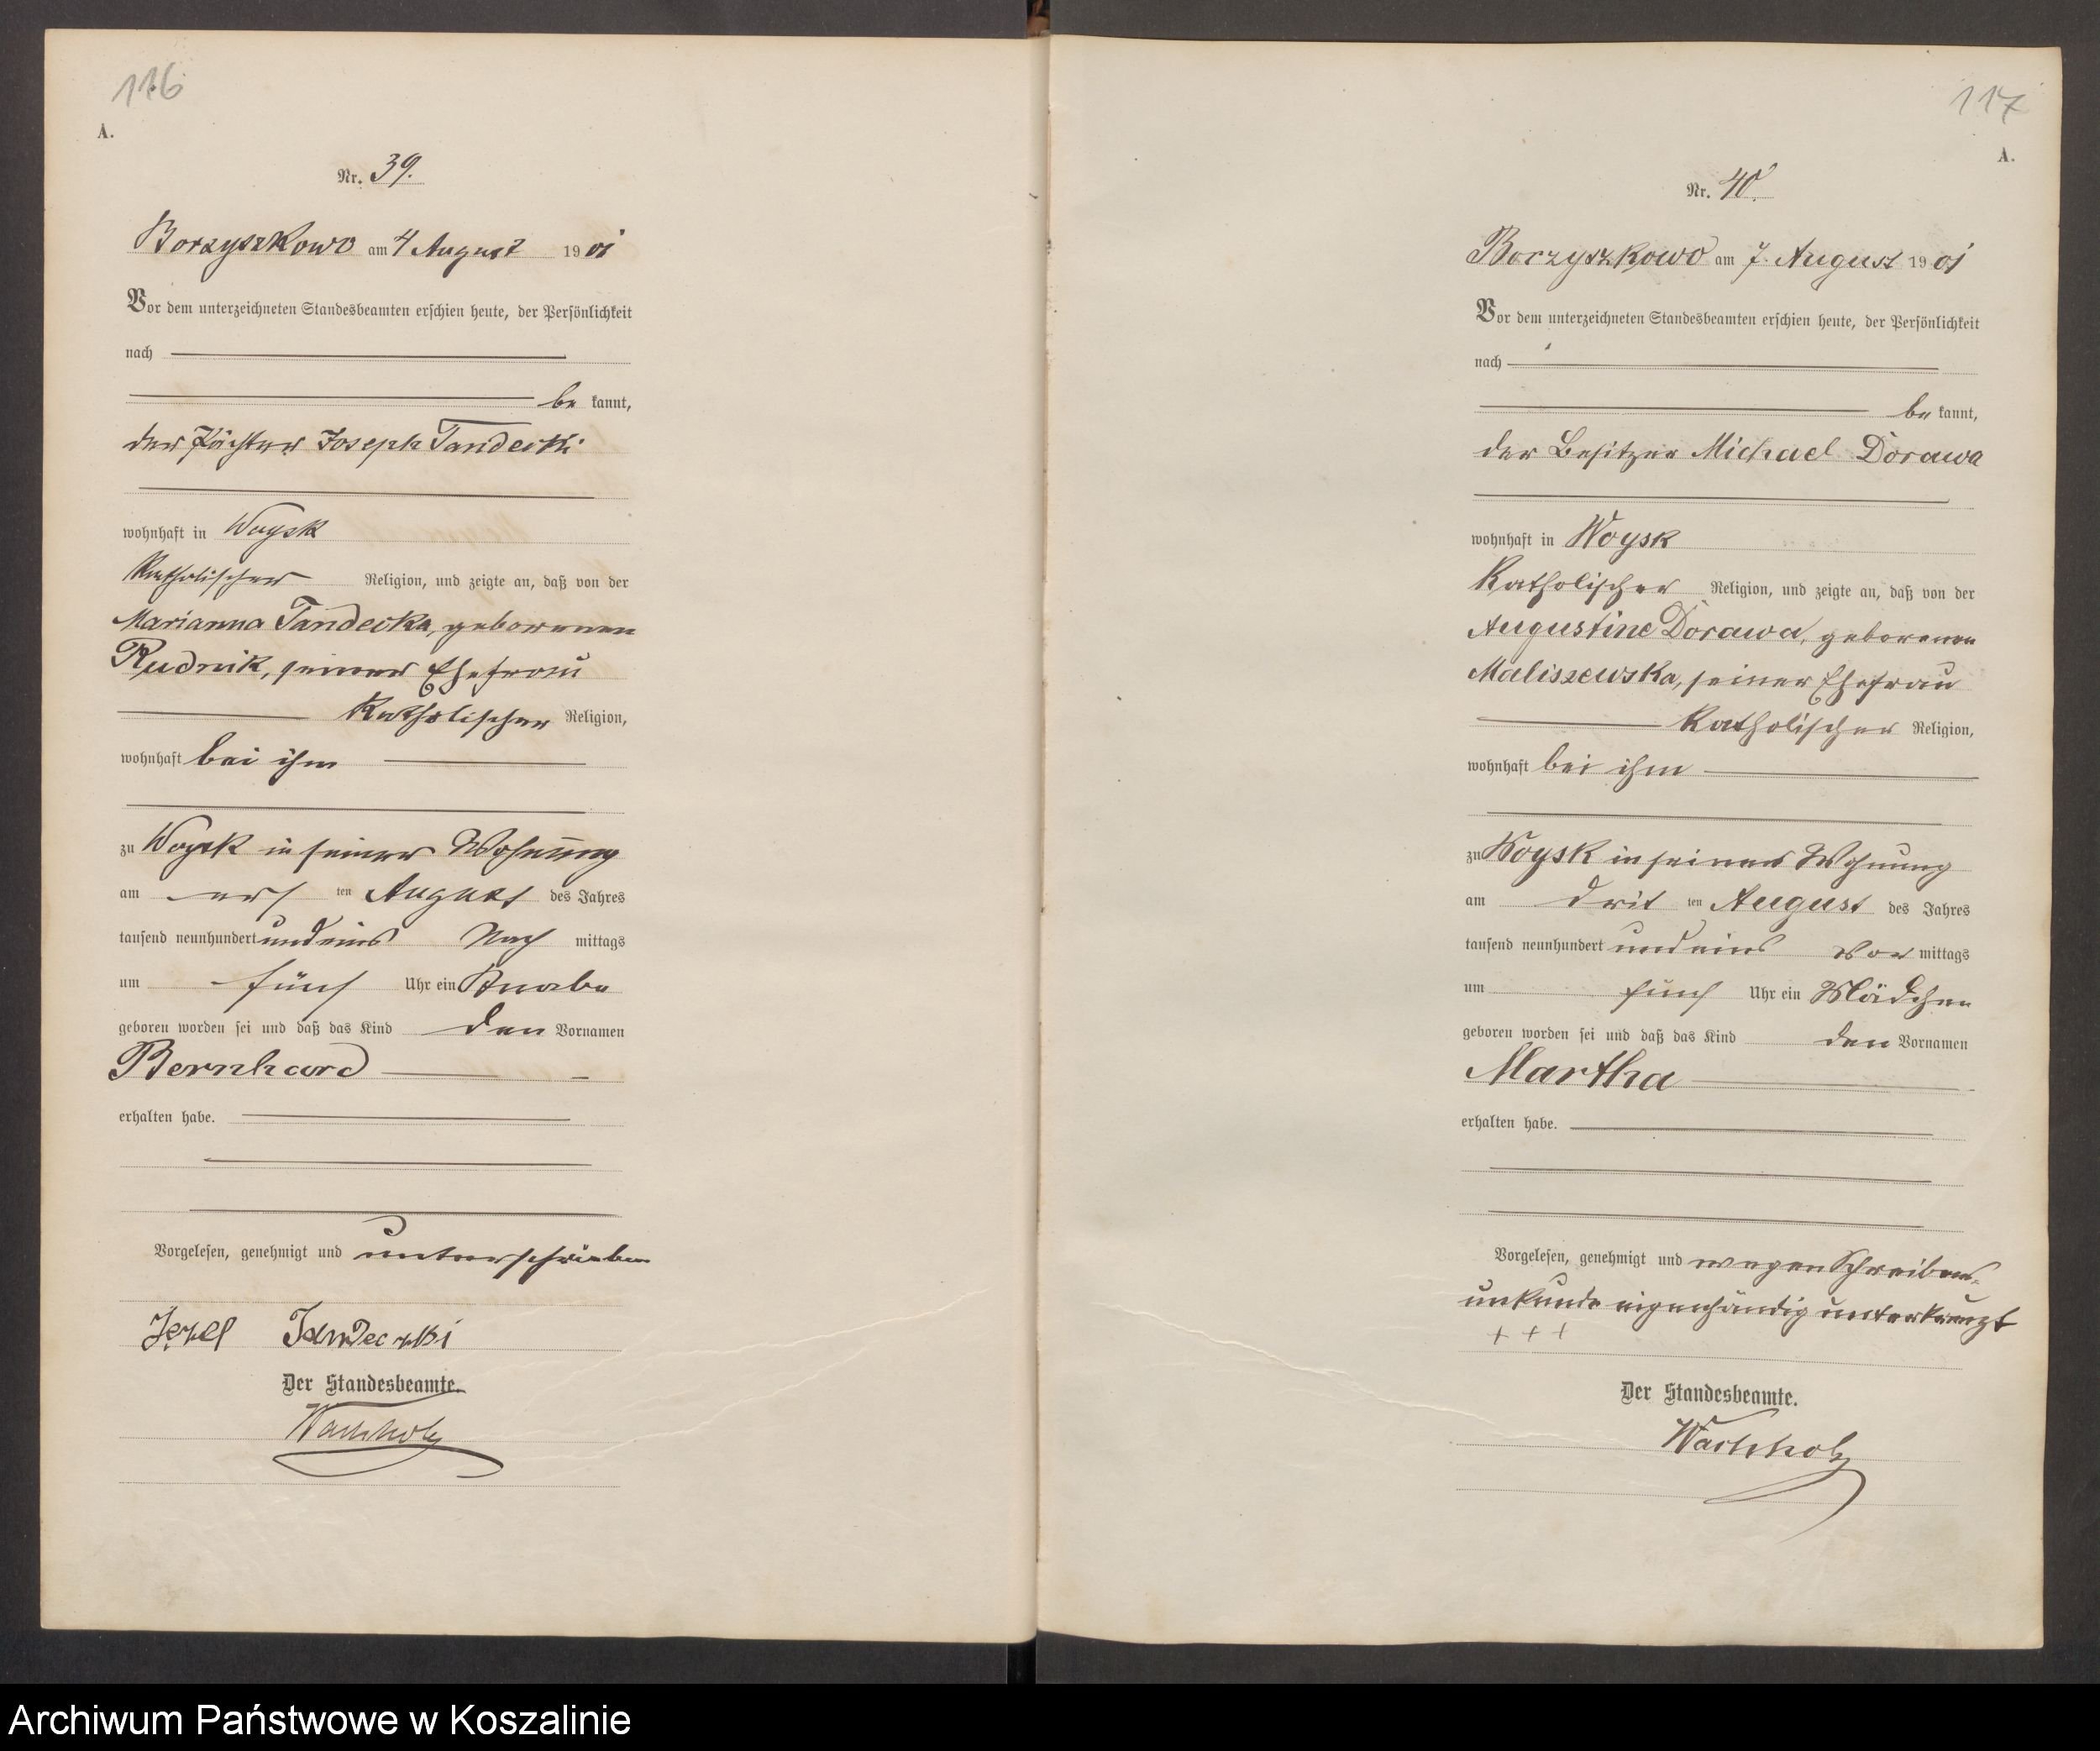 116
A.
Nr. 39.
Borzyszkowo am 4 August 1901
Vor dem unterzeichneten Standesbeamten erschien heute, der Persönlichkeit
nach
be kannt,
der Pächter Joseph Tandecki
wohnhaft in Woysk
Katholischer Religion, und zeigte an, daß von der
Marianna Tandecka, geborenen
Rudnik, seiner Ehefrau
Katholischer Religion,
wohnhaft bei ihm
zu Woysk in seiner Wohnung
am ers ten August des Jahres
tausend neunhundert und eins Nach mittags
um fünf Uhr ein Knabe
geboren worden sei und daß das Kind den Vornamen
Bernhard
erhalten habe.
Vorgelesen, genehmigt und unterschrieben
Der Standesbeamte.
Wachholz
117
A.
Nr. 40.
Borzyszkowo am 7. August 1901
Vor dem unterzeichneten Standesbeamten erschien heute, der Persönlichkeit
nach
be kannt,
der Besitzer Michael Dorawa
wohnhaft in Woysk
Katholischer Religion, und zeigte an, daß von der
Augustine Dorawa, geborenen
Maliszewska, seiner Ehefrau
Katholischer Religion,
wohnhaft bei ihm
zu Woysk in seiner Wohnung
am drit ten August des Jahres
tausend neunhundert und eins Vor mittags
um fünf Uhr ein Mädchen
geboren worden sei und daß das Kind den Vornamen
Martha
erhalten habe.
Vorgelesen, genehmigt und wegen Schreibens-
unkunde eigenhändig unterkreuzt
+ + +
Der Standesbeamte.
Wachholz
Archiwum Państwowe w Koszalinie